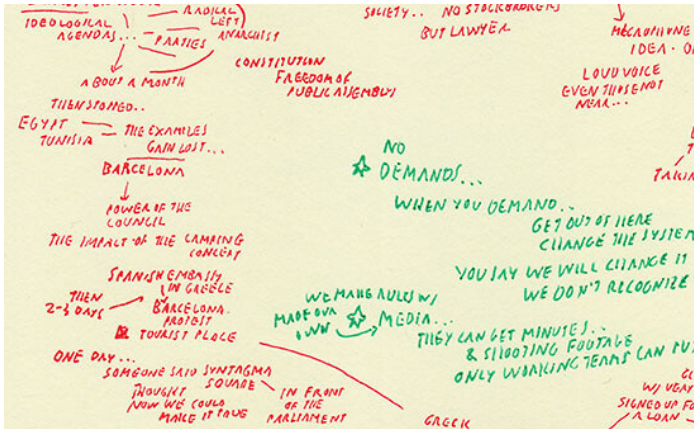 IDEOLOGICAL
AGENDAS...
RADICAL
LEFT
PARTIES
ANARCHIST
ABOUT A MONTH
THEN STOPPED..
EGYPT
TUNISIA
THE EXAMPLES
GAIN LOST...
BARCELONA
POWER OF THE
COUNCIL
THE IMPACT OF THE CAMPING
CONCEPT
SPANISH EMBASSY
IN GREECE
THEN
2-3 DAYS
BARCELONA
PROTEST
TOURIST PLACE
ONE DAY...
SOMEONE SAID SYNTAGMA
SQUARE
THOUGHT
NOW WE COULD
MAKE IT TRUE
IN FRONT
OF THE
PARLIAMENT
CONSTITUTION
FREEDOM OF
PUBLIC ASSEMBLY
SOCIETY.. NO STOCKBROKERS
BUT LAWYER
MICROPHONE
IDEA
LOUD VOICE
EVEN THOSE NOT
NEAR...
NO
DEMANDS...
WHEN YOU DEMAND..
GET OUT OF HERE
CHANGE THE SYSTEM
YOU SAY WE WILL CHANGE IT
WE DON'T RECOGNIZE
WE MAKE RULES W/
MADE OUR
OWN
MEDIA...
THEY CAN GET MINUTES..
& SHOOTING FOOTAGE
ONLY WORKING TEAMS CAN PUT
TAKIN
W/ VERY
SIGNED UP FO
A LOAN
GREEK